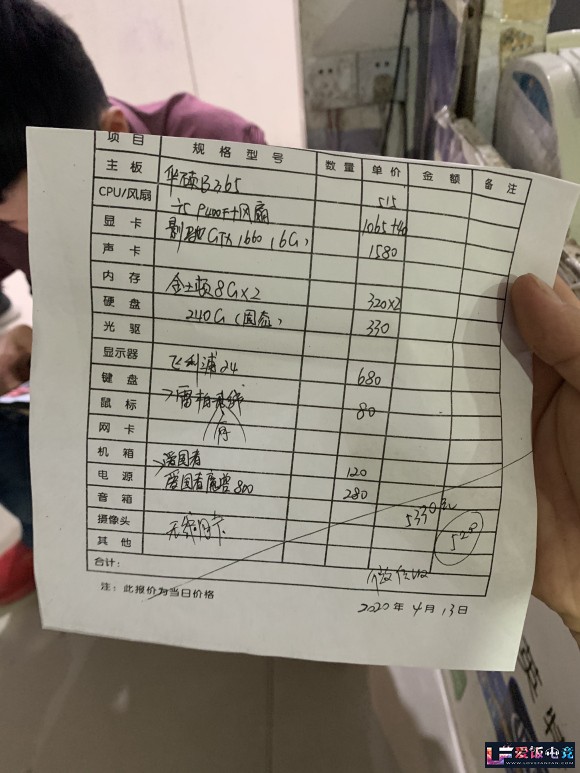 项目 规格型号 数量 单价 金额 备注
主板 华硕B365 515
CPU/风扇 i5 9400F+风扇 1065+40
显卡 影驰GTX 1660 (6G) 1580
声卡
内存 金士顿8G×2 320×2
硬盘 240G(固态) 330
光驱
显示器 飞利浦24 680
键盘 雷柏 80
鼠标
网卡
机箱 爱国者 120
电源 爱国者 800 280
音箱 5330元
摄像头 无线网卡 528
其他
合计:
注:此报价为当日价格
2020年4月13日
爱饭电竞